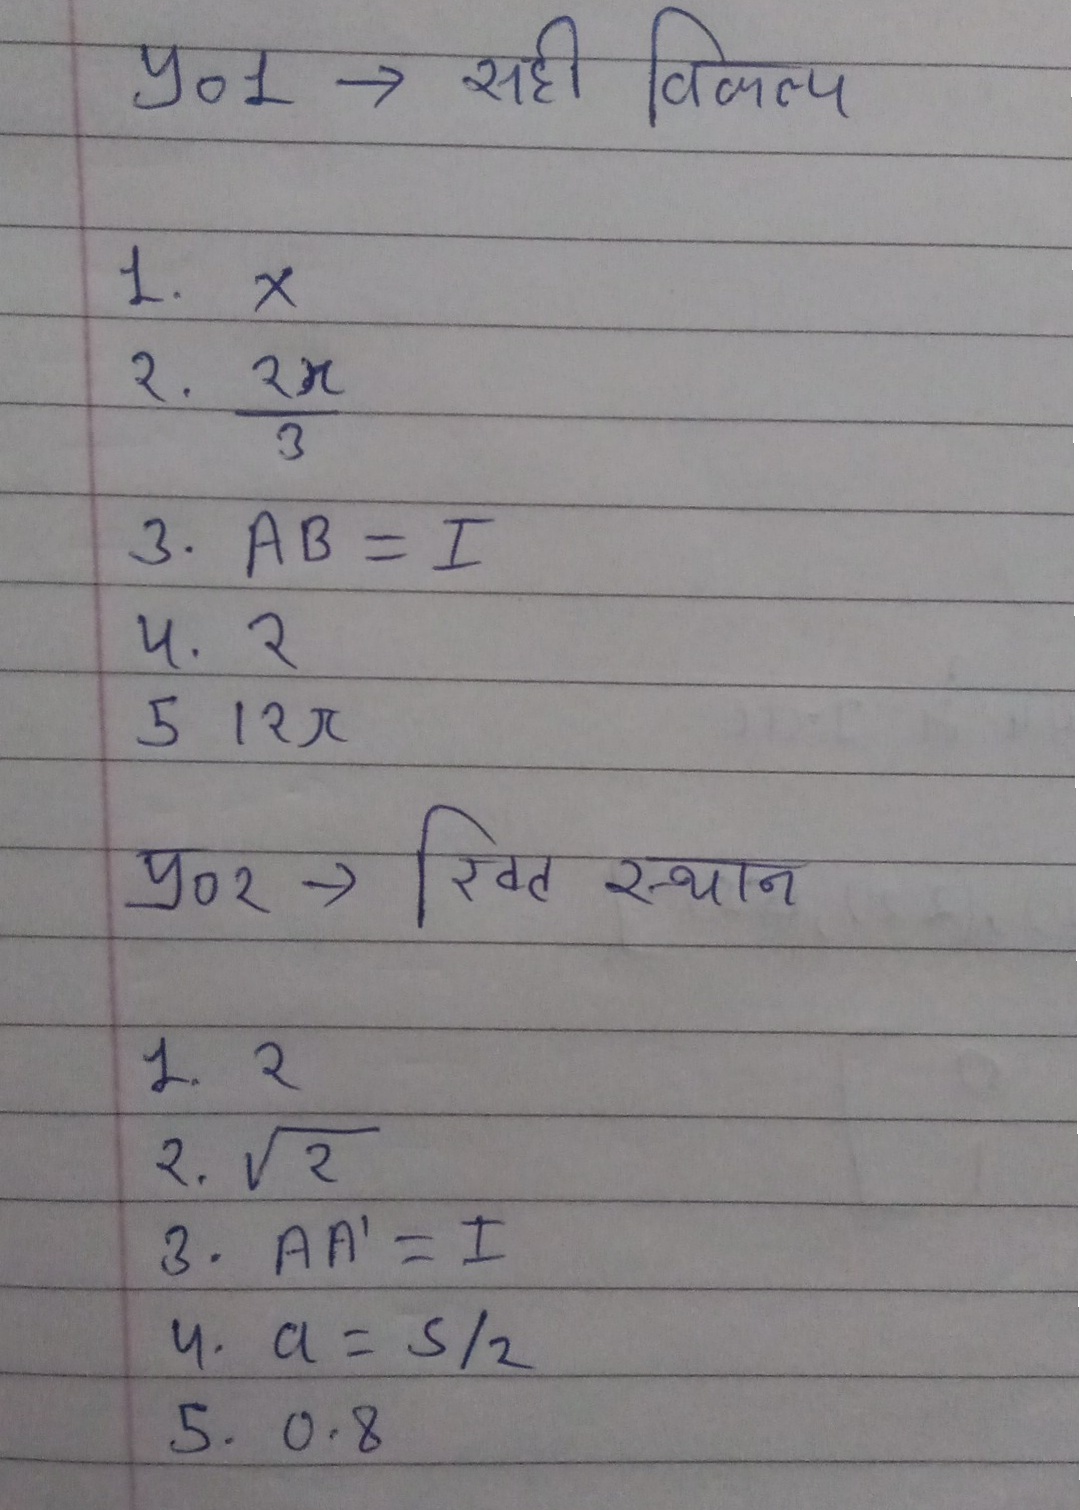 प्र०1 → सही विकल्प
1. x
2. 2π
3
3. AB = I
4. 2
5 12π
प्र०2 → रिक्त स्थान
1. 2
2. √2
3. AA' = I
4. a = 5/2
5. 0.8